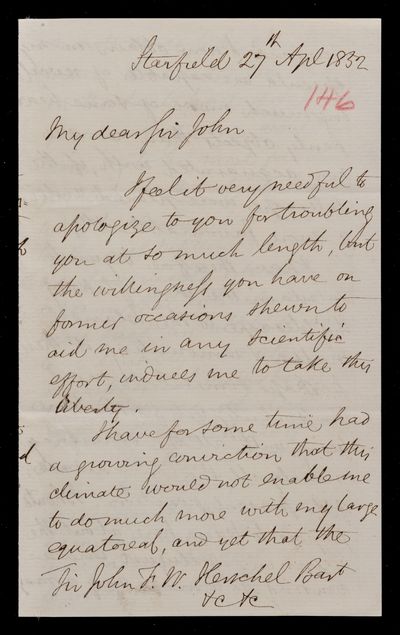 Starfield 27th Apl 1832
146
My dear Sir John
I feel it very needful to
apologize to you for troubling
you at so much length, but
the willingness you have on
former occasions shewn to
aid me in any scientific
effort, induces me to take this
liberty.
I have for some time had
a growing conviction that this
climate would not enable me
to do much more with my large
equatoreal, and yet that the
Sir John F. W. Herschel Bart
&c &c